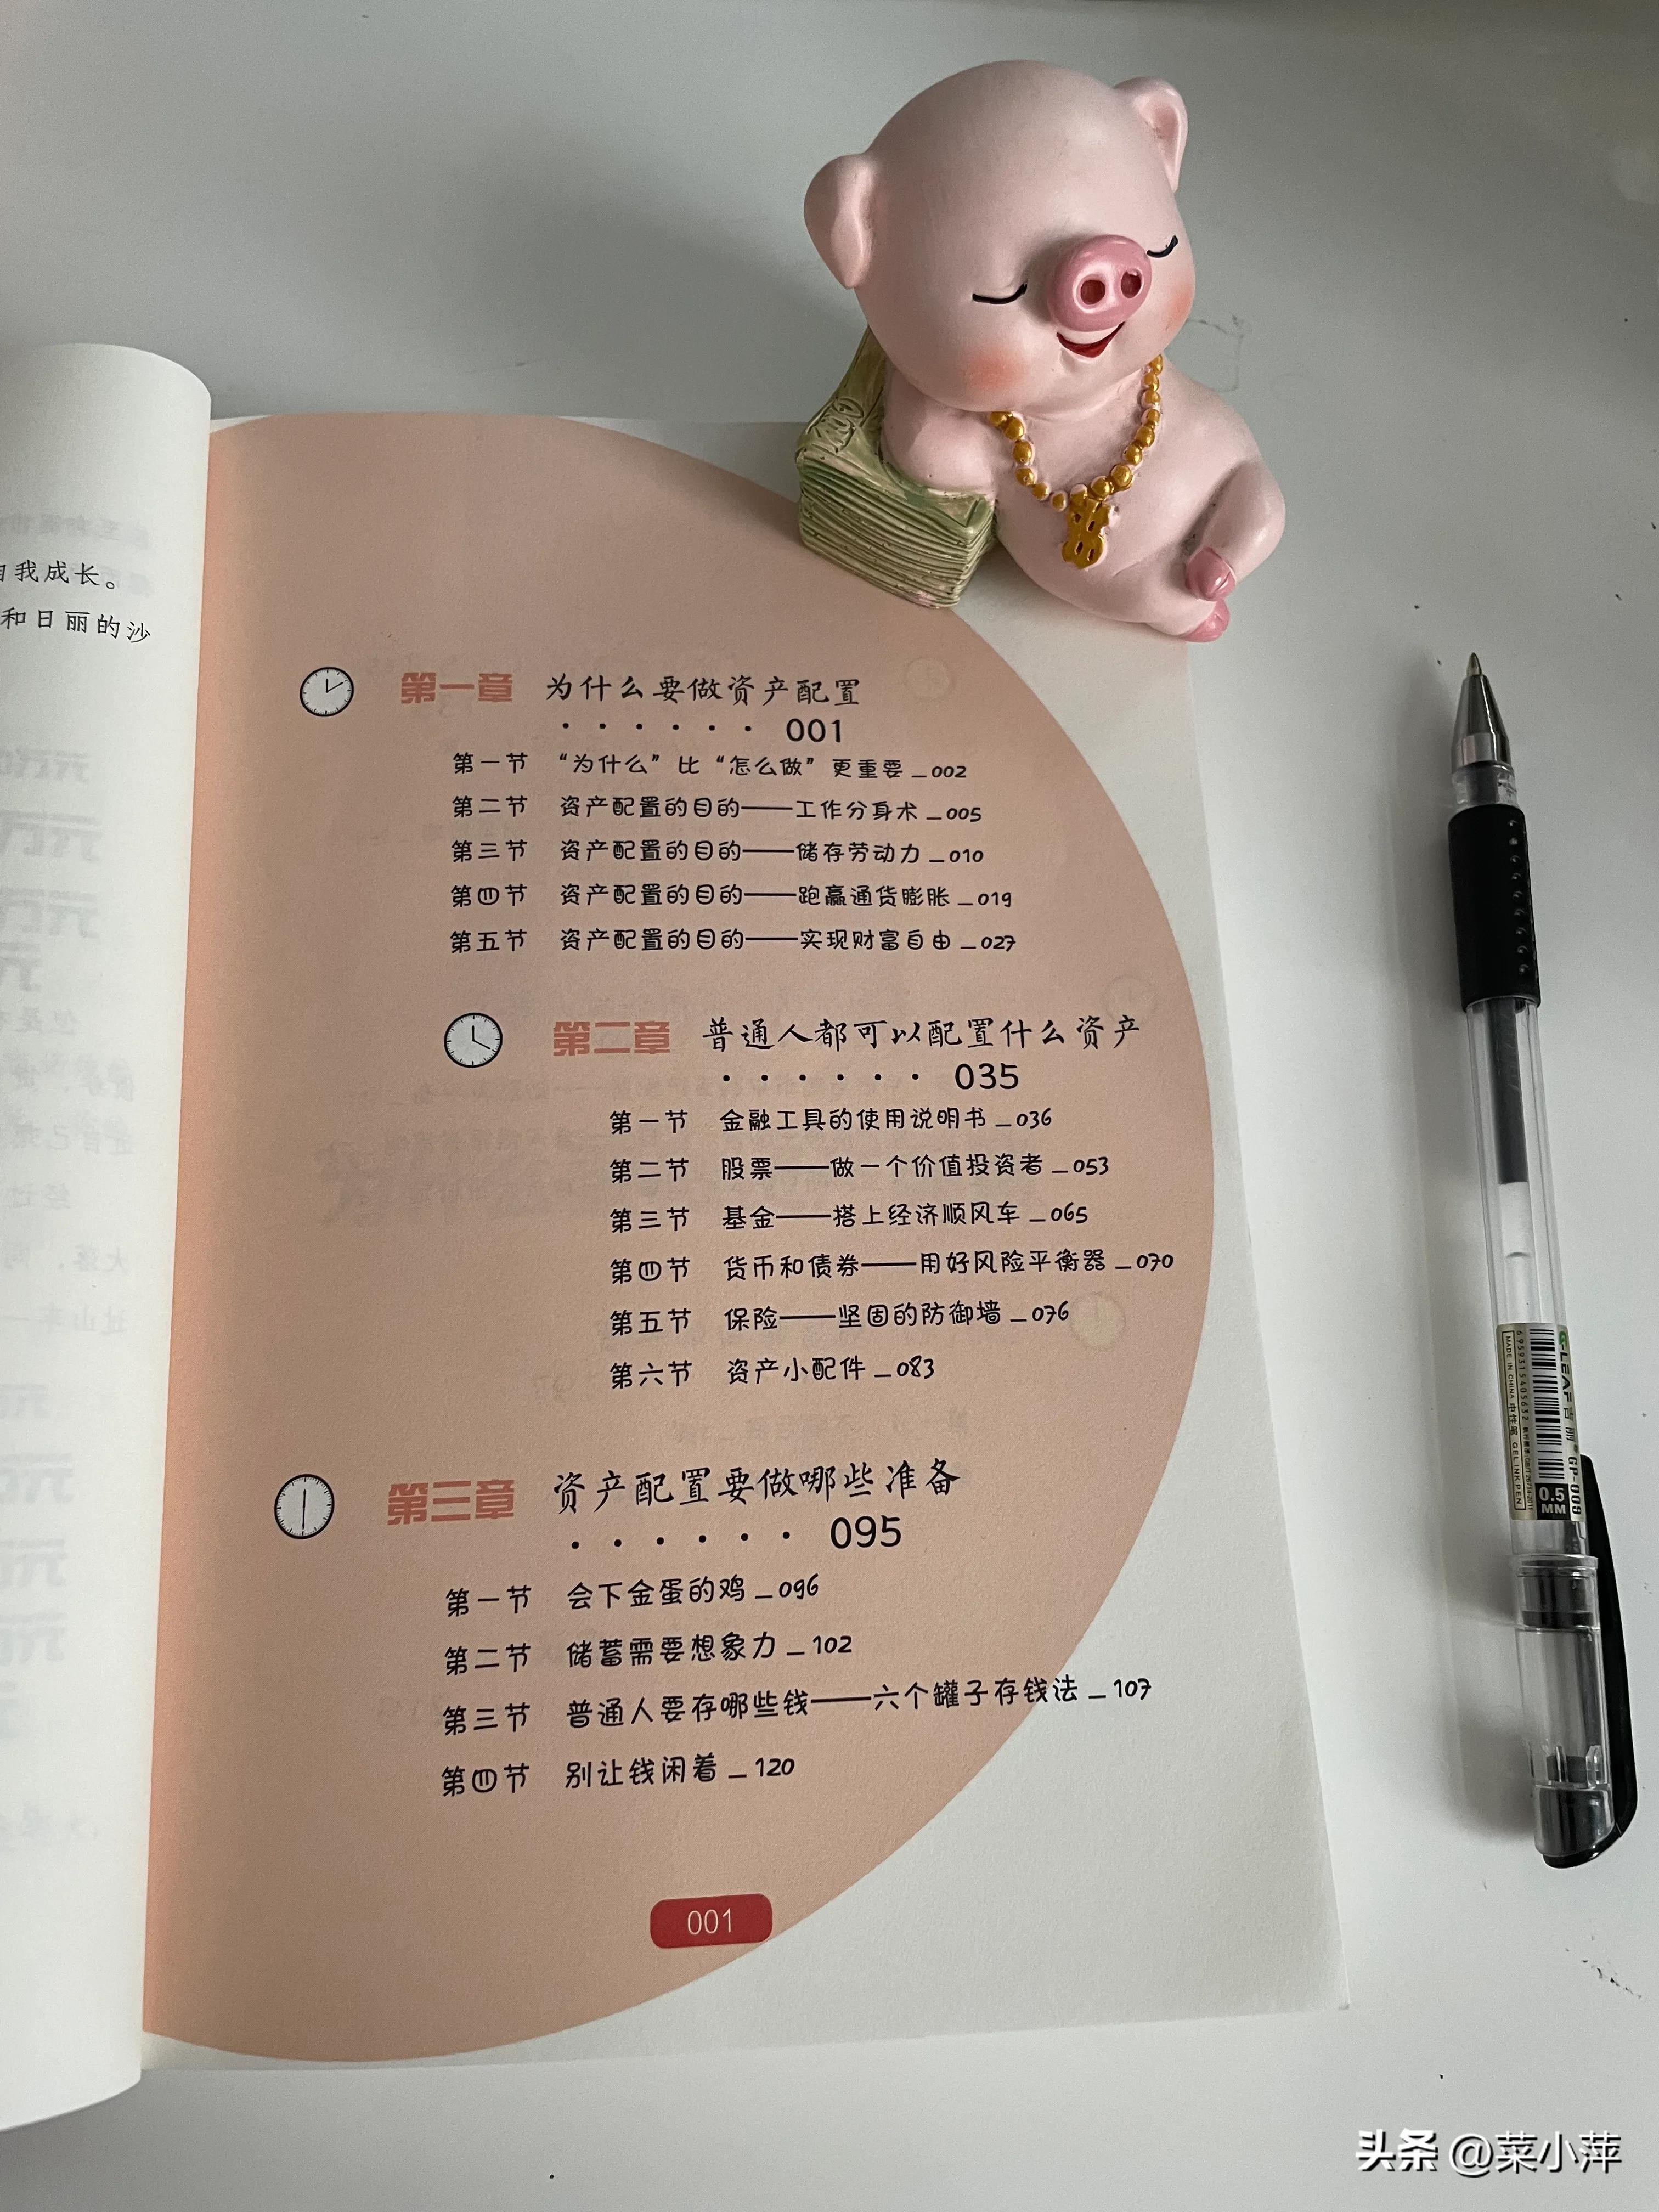 自我成长。
和日丽的沙
第一章 为什么要做资产配置
······ 001
第一节 “为什么”比“怎么做”更重要_002
第二节 资产配置的目的——工作分身术_005
第三节 资产配置的目的——储存劳动力_010
第四节 资产配置的目的——跑赢通货膨胀_019
第五节 资产配置的目的——实现财富自由_027
第二章 普通人都可以配置什么资产
······ 035
第一节 金融工具的使用说明书_036
第二节 股票——做一个价值投资者_053
第三节 基金——搭上经济顺风车_065
第四节 货币和债券——用好风险平衡器_070
第五节 保险——坚固的防御墙_076
第六节 资产小配件_083
第三章 资产配置要做哪些准备
······ 095
第一节 会下金蛋的鸡_096
第二节 储蓄需要想象力_102
第三节 普通人要存哪些钱——六个罐子存钱法_107
第四节 别让钱闲着_120
001
G-LEAF 吉丽® GP-008
0.5
MM
6959315405632
MADE IN CHINA 中性笔 GELINKPEN
头条 @菜小萍